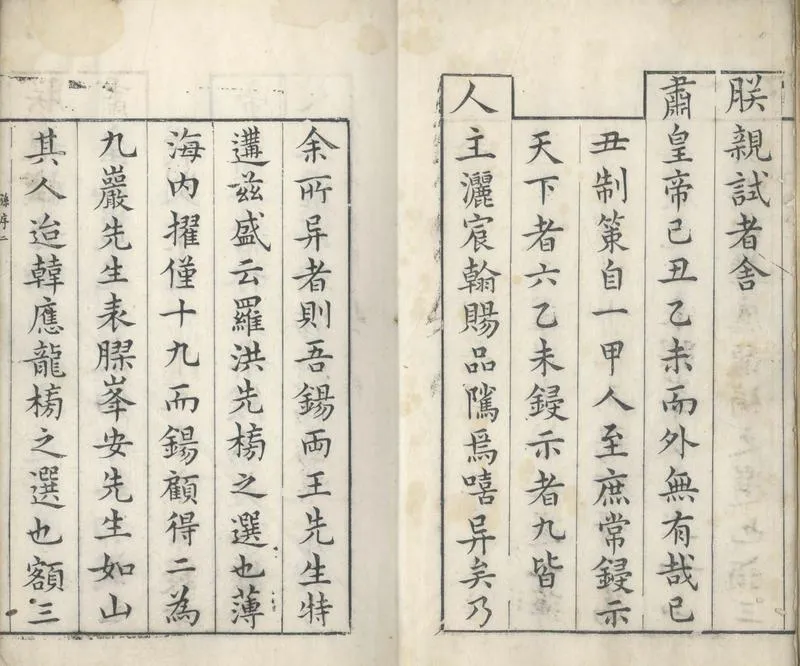 朕親試者舍
肅皇帝己丑乙未而外無有哉己
丑制策自一甲人至庶常鋟示
天下者六乙未鋟示者九皆
人主灑宸翰賜品隲焉嘻异矣乃
余所异者則吾錫兩王先生特
遘茲盛云羅洪先榜之選也薄
海内擢僅十九而錫顧得二為
九巖先生表膠峯安先生如山
其人迨韓應龍榜之選也額三
孫序二